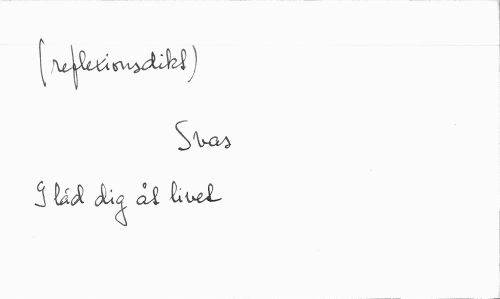 (reflexionsdikt)
Svas
Gläd dig åt livet